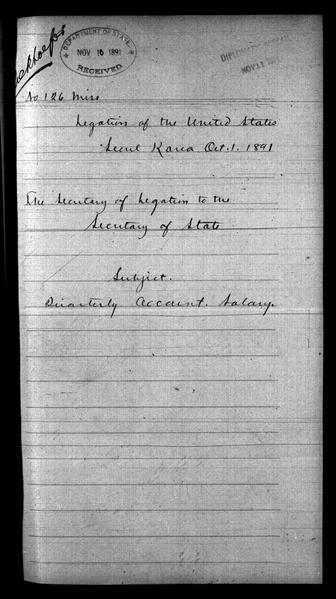 DEPARTMENT OF STATE
NOV 10 1891
RECEIVED
NOV 11
No 126 Miss
Legation of the United States
Seoul Korea Oct. 1. 1891
The Secretary of Legation to the
Secretary of State
Subject.
Quarterly Account. Salary.